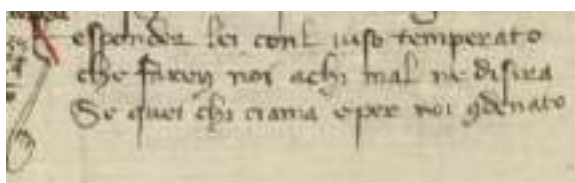 esponder lei conl uiso temperato
che farem noi achi mal ne disira
Se quei chi ciama eper noi ꝯdenato